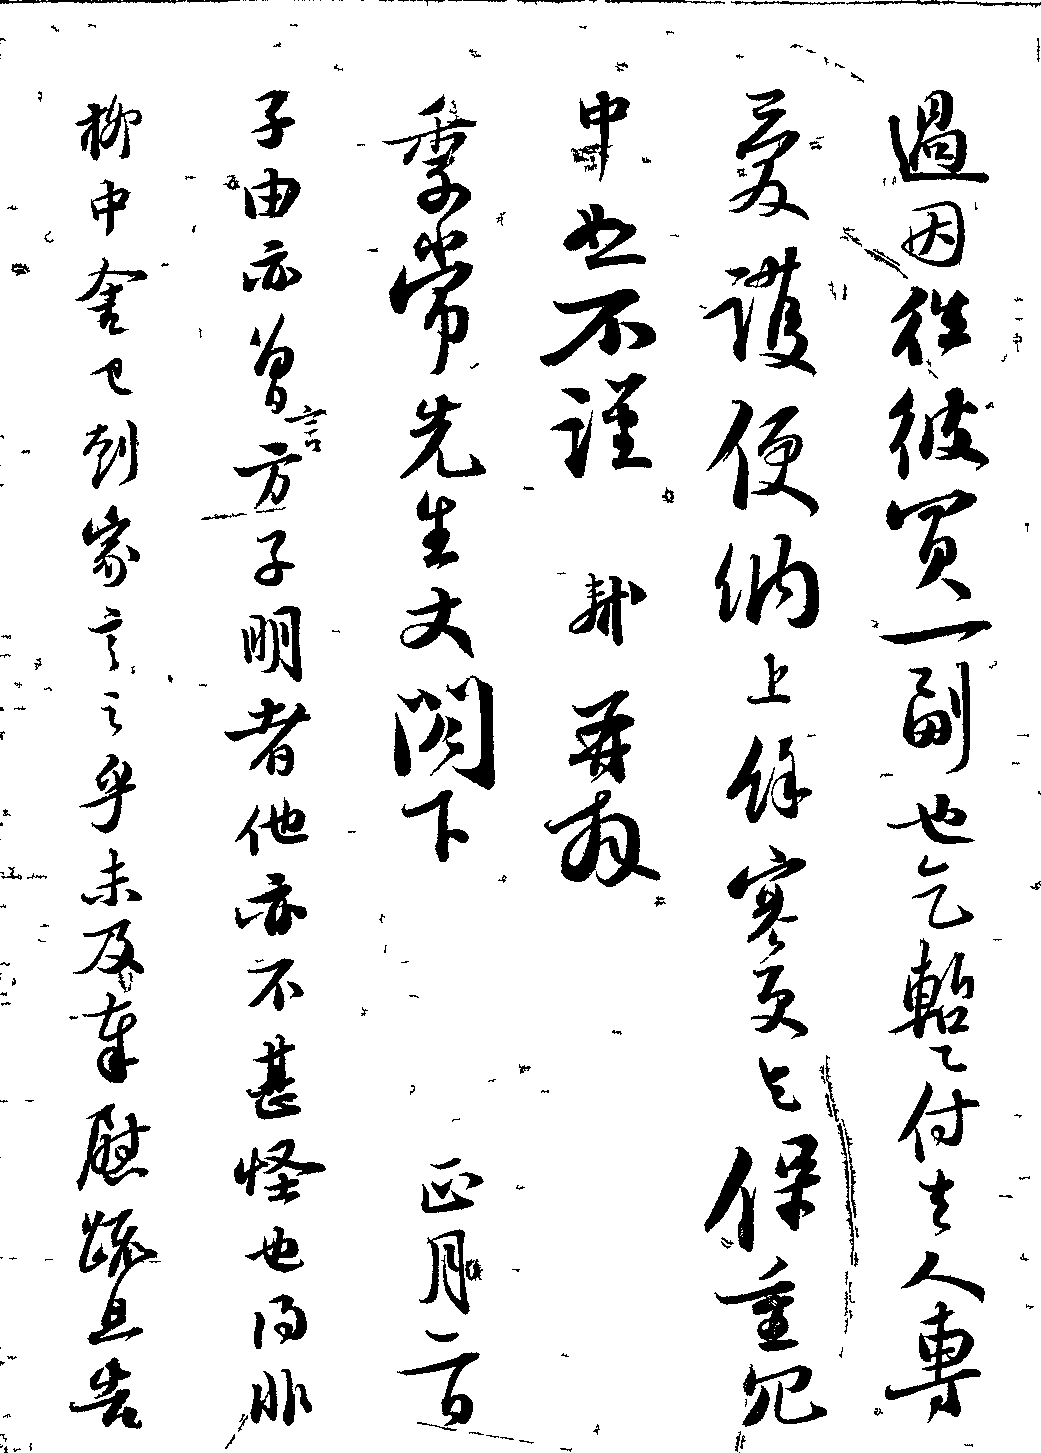 過因往彼買一副也乞暫付去人專
愛護便納上餘寒更乞保重冗
中恕不謹 軾再拜
季常先生丈閣下 正月二日
子由亦曾言方子明者他亦不甚怪也得非
柳中舍已到家言之乎未及奉慰疏且告